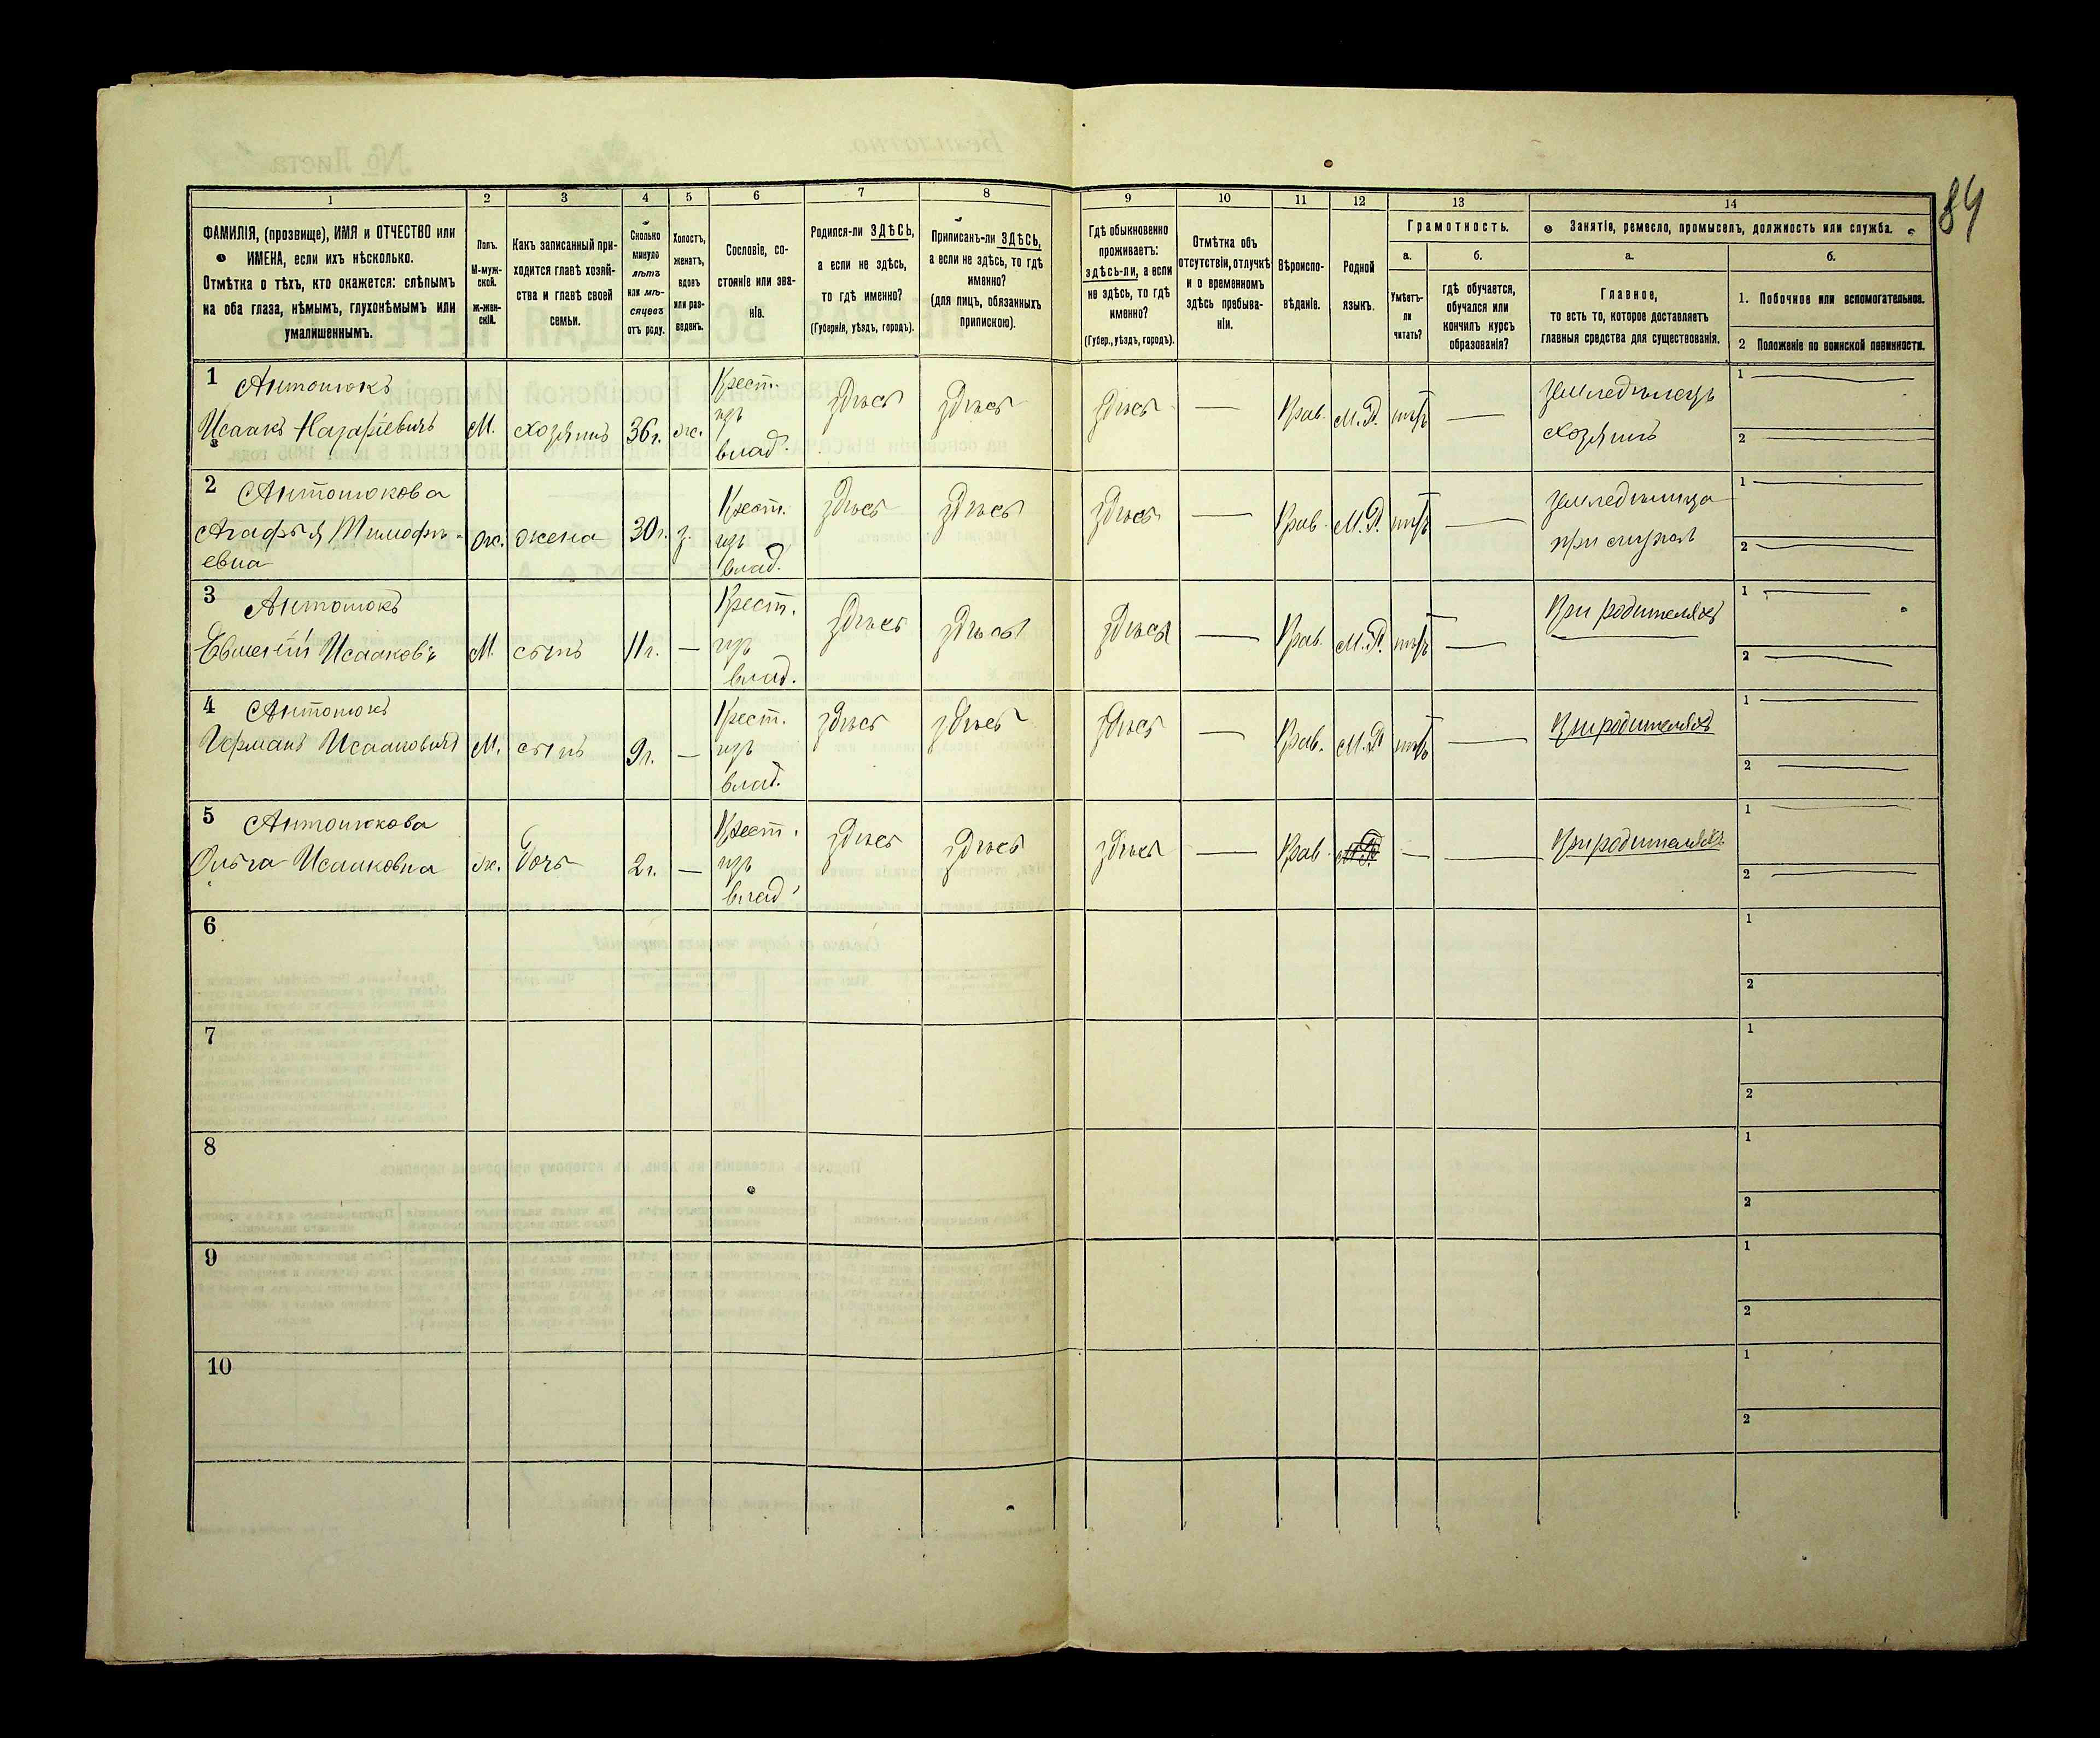 84
1 2 3 4 5 6 7 8 9 10 11 12 13 14
ФАМИЛІЯ, (прозвище), ИМЯ и ОТЧЕСТВО или
ИМЕНА, если ихъ нѣсколько.
Отмѣтка о тѣхъ, кто окажется: слѣпымъ
на оба глаза, нѣмымъ, глухонѣмымъ или
умалишеннымъ.
Полъ.
М-муж-
ской.
ж-жен-
скій.
Какъ записанный при-
ходится главѣ хозяй-
ства и главѣ своей
семьи.
Сколько
минуло
лѣтъ
или мѣ-
сяцевъ
отъ роду.
Холостъ,
женатъ,
вдовъ
или раз-
веденъ.
Сословіе, со-
стояніе или зва-
ніе.
Родился-ли ЗДѢСЬ,
а если не здѣсь,
то гдѣ именно?
(Губернія, уѣздъ, городъ).
Приписанъ-ли ЗДѢСЬ,
а если не здѣсь, то гдѣ
именно?
(для лицъ, обязанныхъ
припискою).
Гдѣ обыкновенно
проживаетъ:
здѣсь-ли, а если
не здѣсь, то гдѣ
именно?
(Губер., уѣздъ, городъ).
Отмѣтка объ
отсутствіи, отлучкѣ
и о временномъ
здѣсь пребыва-
ніи.
Вѣроиспо-
вѣданіе.
Родной
языкъ.
Грамотность.
а.
Умѣетъ-
ли
читать?
б.
гдѣ обучается,
обучался или
кончилъ курсъ
образованія?
Занятіе, ремесло, промыселъ, должность или служба.
а.
Главное,
то есть то, которое доставляетъ
главныя средства для существованія.
б.
1. Побочное или вспомогательное.
2 Положеніе по воинской повинности.
1 Антонюкъ
Исаакъ Назарiевичъ М. хозяинъ 36 г. ж. Крест. изъ влад. здѣсь здѣсь здѣсь — Прав. М.Р. нѣтъ — Земледѣлецъ хозяинъ 1 — 2 —
2 Антонюкова
Агафья Тимофѣ-
евна ж. жена 30 г. з. Крест. изъ влад. здѣсь здѣсь здѣсь — Прав. М.Р. нѣтъ — Земледѣлица при мужѣ 1 — 2 —
3 Антонюкъ
Исааковъ М. сынъ 11 г. — Крест. изъ влад. здѣсь здѣсь здѣсь — Прав. М.Р. нѣтъ — При родителяхъ 1 — 2 —
4 Антонюкъ
Германъ Исааковичъ М. сынъ 9 г. — Крест. изъ влад. здѣсь здѣсь здѣсь — Прав. М.Р. нѣтъ — При родителяхъ 1 — 2 —
5 Антонюкова
Ольга Исааковна ж. дочь 2 г. — Крест. изъ влад. здѣсь здѣсь здѣсь — Прав. М.Р. — — При родителяхъ 1 — 2 —
6 1
2
7 1
2
8 1
2
9 1
2
10 1
2